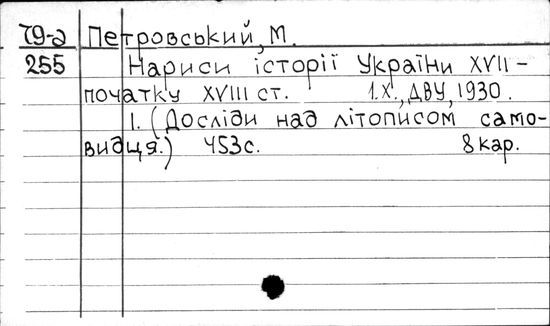 79-д Петровський, М.
255 Нариси історії України XVII -
початку XVIII ст. 1.Х., ДВУ, 1930.
I. (Досліди над літописом само-
видця.) 453с. 8 кар.